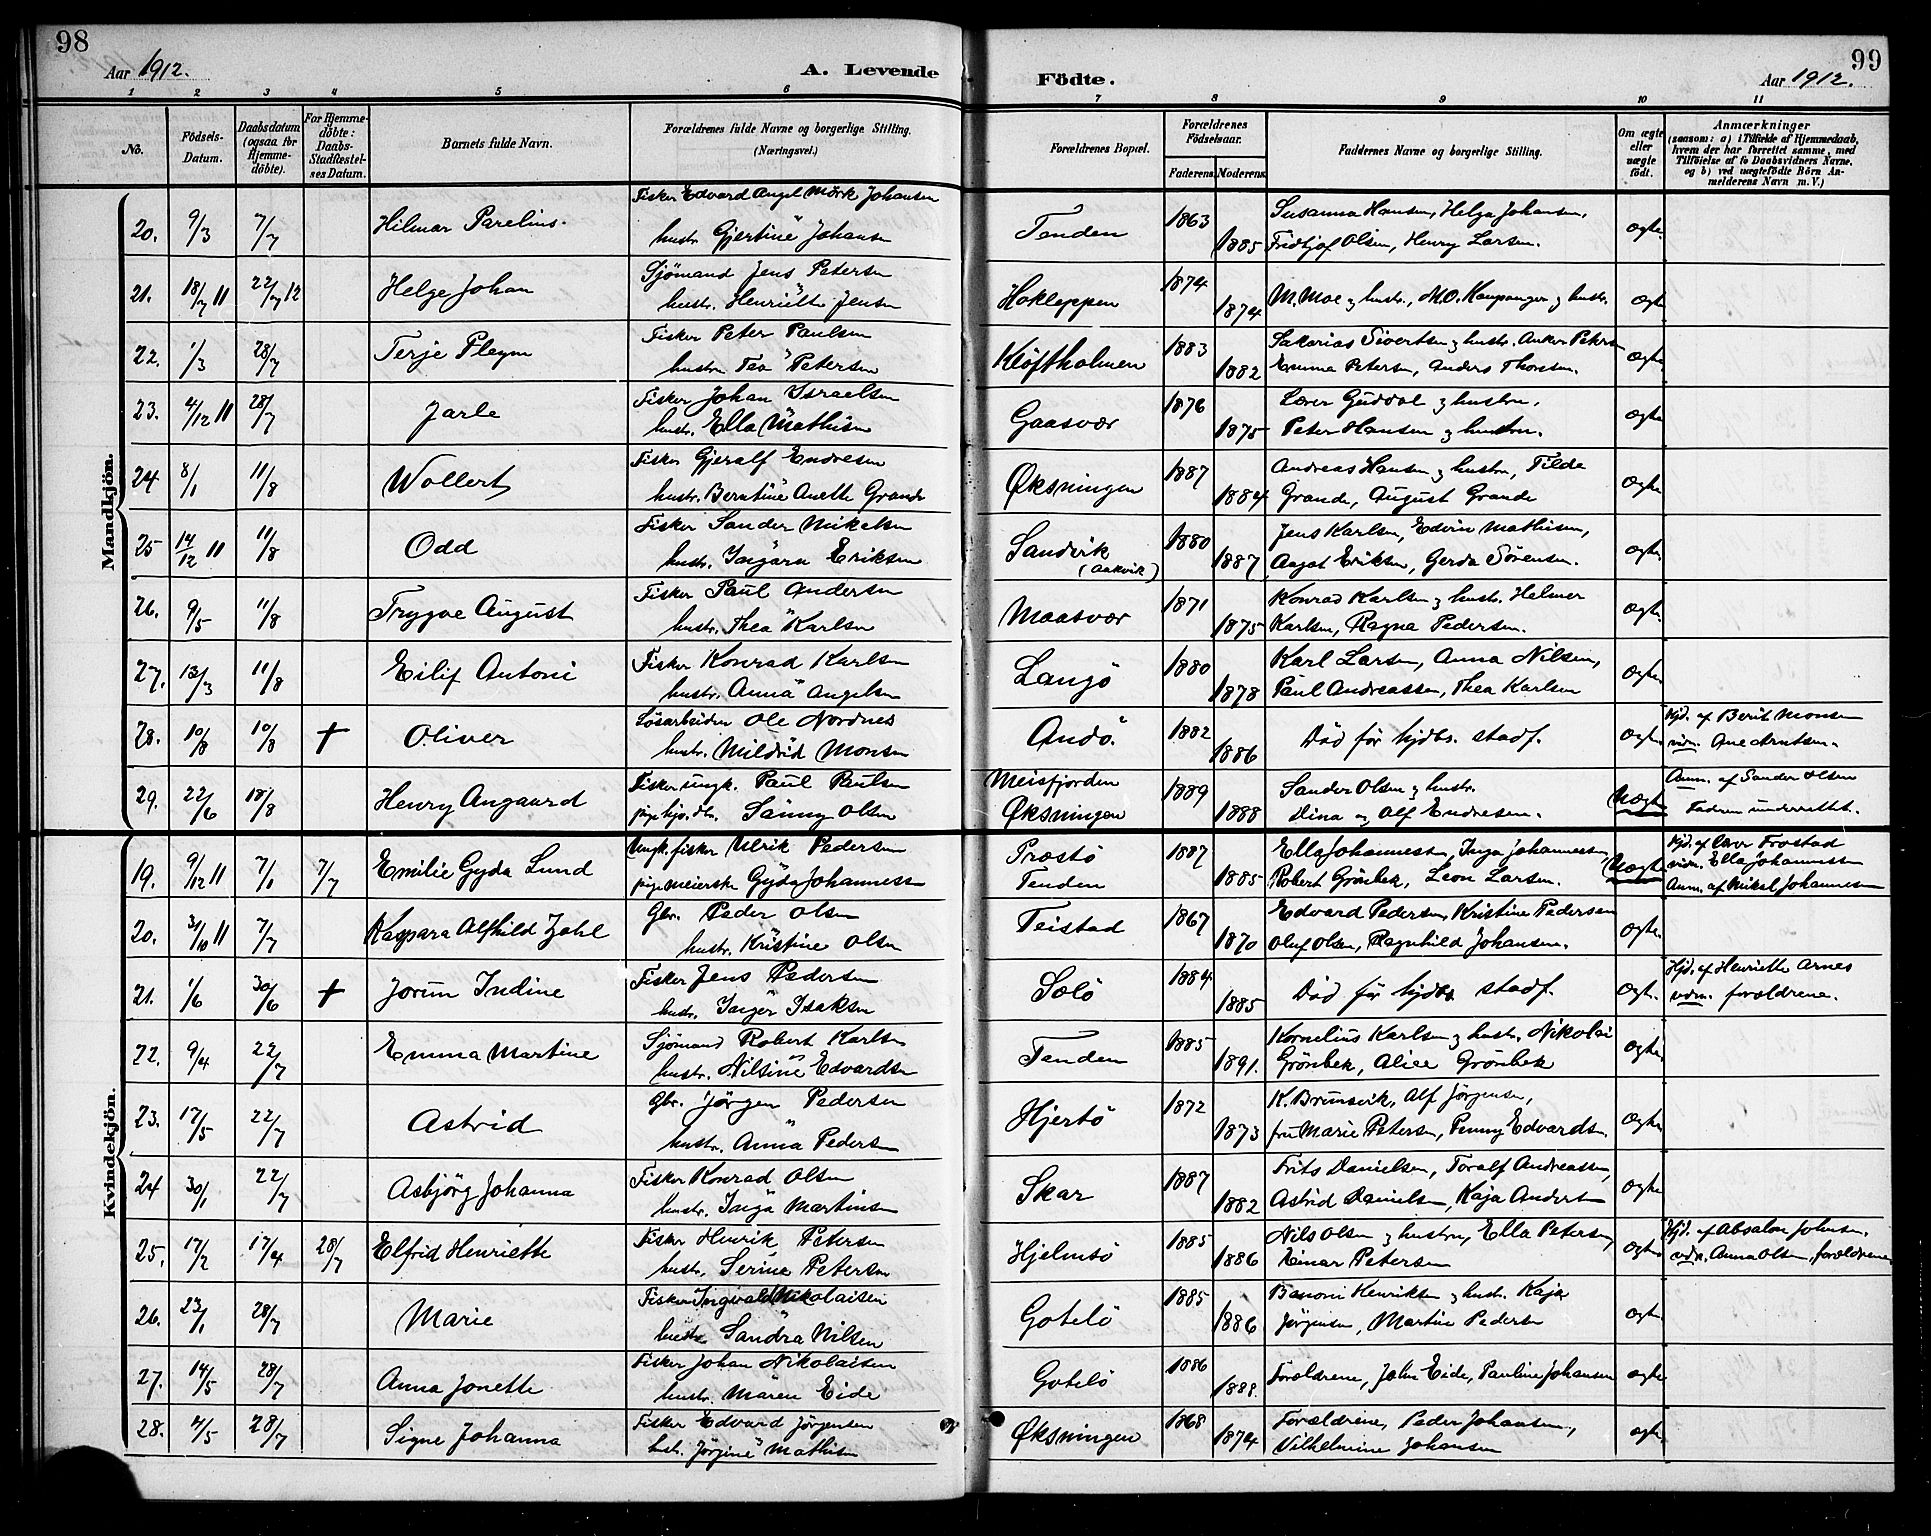 98
99
Aar 1912.
A. Levende
Födte.
Aar 1912.
1 2 3 4 5 6 7 8 9 10 11
No. Födsels-Datum. Daabsdatum (ogsaa for Hjemmedöbte). For Hjemmedöbte: Daabs-Stadfæstelses Datum. Barnets fulde Navn. Forældrenes fulde Navne og borgerlige Stilling. (Næringsvei.) Forældrenes Bopæl. Forældrenes Födselsaar. Faderens. Moderens. Faddernes Navne og borgerlige Stilling. Om ægte eller uægte födt. Anmærkninger (saasom: a) i Tilfælde af Hjemmedaab, hvem der har forrettet samme, med Tilföielse af to Daabsvidners Navne, og b) ved uægtefödte Börn Anmelderens Navn m. V.)
Mandkjön.
Fisker Edvard Angel Mörk Johansen Susanna Hansen, Helga Johansen,
20. 9/3 7/7 Hilmar Parelius. hustr. Gjertine Johansen Tenden 1863 1885 Fridtjof Olsen, Henry Larsen. ægte.
Sjömand Jens Petersen
21. 18/7 11 22/7 12 Helge Johan hustr. Henriette Jensen Hokleppen 1874 1874 M. Moe og hustr., M.O. Kaupanger og hustr. ægte
Fisker Peter Paulsen Sakarias Sivertsen og hustr. Anker Petersen
22. 1/3 28/7 Terje Pleym hustru Tea Petersen Kløftholmen 1883 1882 Emma Petersen, Anders Thorsen. ægte
Fisker Johan Israelsen Lærer Guddal og hustru,
23. 4/12 11 28/7 Jarle hustr. Ella Mathisen Gaasvær 1876 1875 Peter Hansen og hustru. ægte
Fisker Gjeralf Endresen Andreas Hansen og hustru, Tilda
24 8/1 11/8 Wollert hustr. Berntine Anette Grande Øksningen 1887 1884 Grande, August Grande ægte
Fisker Sander Mikelsen Jens Karlsen, Edvin Mathisen,
25 14/12 11 11/8 Odd hustr. Ingara Eriksen Sandvik (Aakvik) 1880 1887 Aagot Eriksen, Gerda Sörensen. ægte
Fisker Paul Andersen Konrad Karlsen og hustr. Helmer
26. 9/5 11/8 Trygve August hustr. Thea Karlsen Maasvær 1871 1875 Karlsen, Ragna Pedersen. ægte
Fisker Konrad Karlsen Karl Larsen, Anna Nilsen,
27. 13/3 11/8 Eilif Antoni hustr. Anna Angelsen Langö 1880 1878 Paul Andreassen, Thea Karlsen ægte
Løsarbeider Ole Nordnes Hjd. af Berit Monsen
28. 10/8 10/8 + Oliver hustr. Mildrid Monsen Andö. 1882 1886 Död för hjdbs. stadf. ægte vidn. Ane Arntsen.
Fisker ungk. Paul Paulsen Meisfjorden Sander Olsen og hustr. Anm. af Sander Olsen
29. 22/6 18/8 Henry Angaard pige hjv. dtr. Sanny Olsen Øksningen 1889 1888 Dina og Alf Endresen. Uægte Faderen underrettet.
Kvindekjön.
Ungk. fisker Ulrik Pedersen Præstö Ella Johannesen, Inga Johannesen, Hjd. af Frostad
19. 9/12 11 7/1 7/7 Emilie Gyda Lund pige meierske Gyda Johannessen Tenden 1887 1885 Robert Grönbek, Leon Larsen. Uægte vidn. Ella Johannessen
Anm. af Mikal Johannesen
Gbr. Peder Olsen Edvard Pedersen, Kristine Pedersen
20. 31/10 11 7/7 Kaspara Alfhild Zahl hustr. Kristine Olsen Teistad 1867 1870 Oluf Olsen, Ragnhild Johansen. ægte.
Fisker Jens Pedersen Hjd. af Henriette Arnes
21. 1/6 30/6 + Jorun Indine hustr. Inger Isaksen Solö 1884 1885 Död för hjdbs stadf. ægte. vidn. forældrene.
Sjömand Robert Karlsen Kornelius Karlsen og hustr. Nikolai
22. 9/4 22/7 Emma Martine hustr. Nilsine Edvardsen Tenden 1885 1891. Grönbek, Alice Grönbek ægte
Gbr. Jörgen Pedersen K. Brunsvik, Alf Jörgensen,
23. 17/5 22/7 Astrid hustr. Anna Pedersen Hjertö 1872 1873 fru Marie Petersen, Penny Edvardsen. ægte
Fisker Konrad Olsen Frits Danielsen, Toralf Andreassen,
24 30/1 22/7 Asbjörg Johanna hustr. Inga Martinsen Skar 1887 1882 Astrid Danielsen, Kaja Andersen ægte
Fisker Henrik Petersen Nils Olsen og hustru, Ella Petersen, Hjd. af Absalon Johnsen.
25. 17/2 17/4 28/7 Elfrid Henriette hustr. Serine Petersen Hjelmsö 1885 1886 Einar Petersen ægte vidn. Anna Olsen, forældrene
Fisker Ingvald Nikolaisen Banoni Henriksen og hustr. Kaja
26. 23/1 28/7 Marie hustr. Sandra Nilsen Gotelö 1885 1886 Jørgensen, Martin Pedersen ægte
Fisker Johan Nikolaisen
27. 14/5 28/7 Anna Jonette hustr. Maren Eide Gotelö 1886 1888. Forældrene, John Eide, Pauline Johansen ægte
Fisker Edvard Jörgensen Forældrene, Peder Johansen,
28. 4/5 28/7 Signe Johanna hustr. Jörgine Mathisen Øksningen 1868 1874 Vilhelmine Johansen ægte.